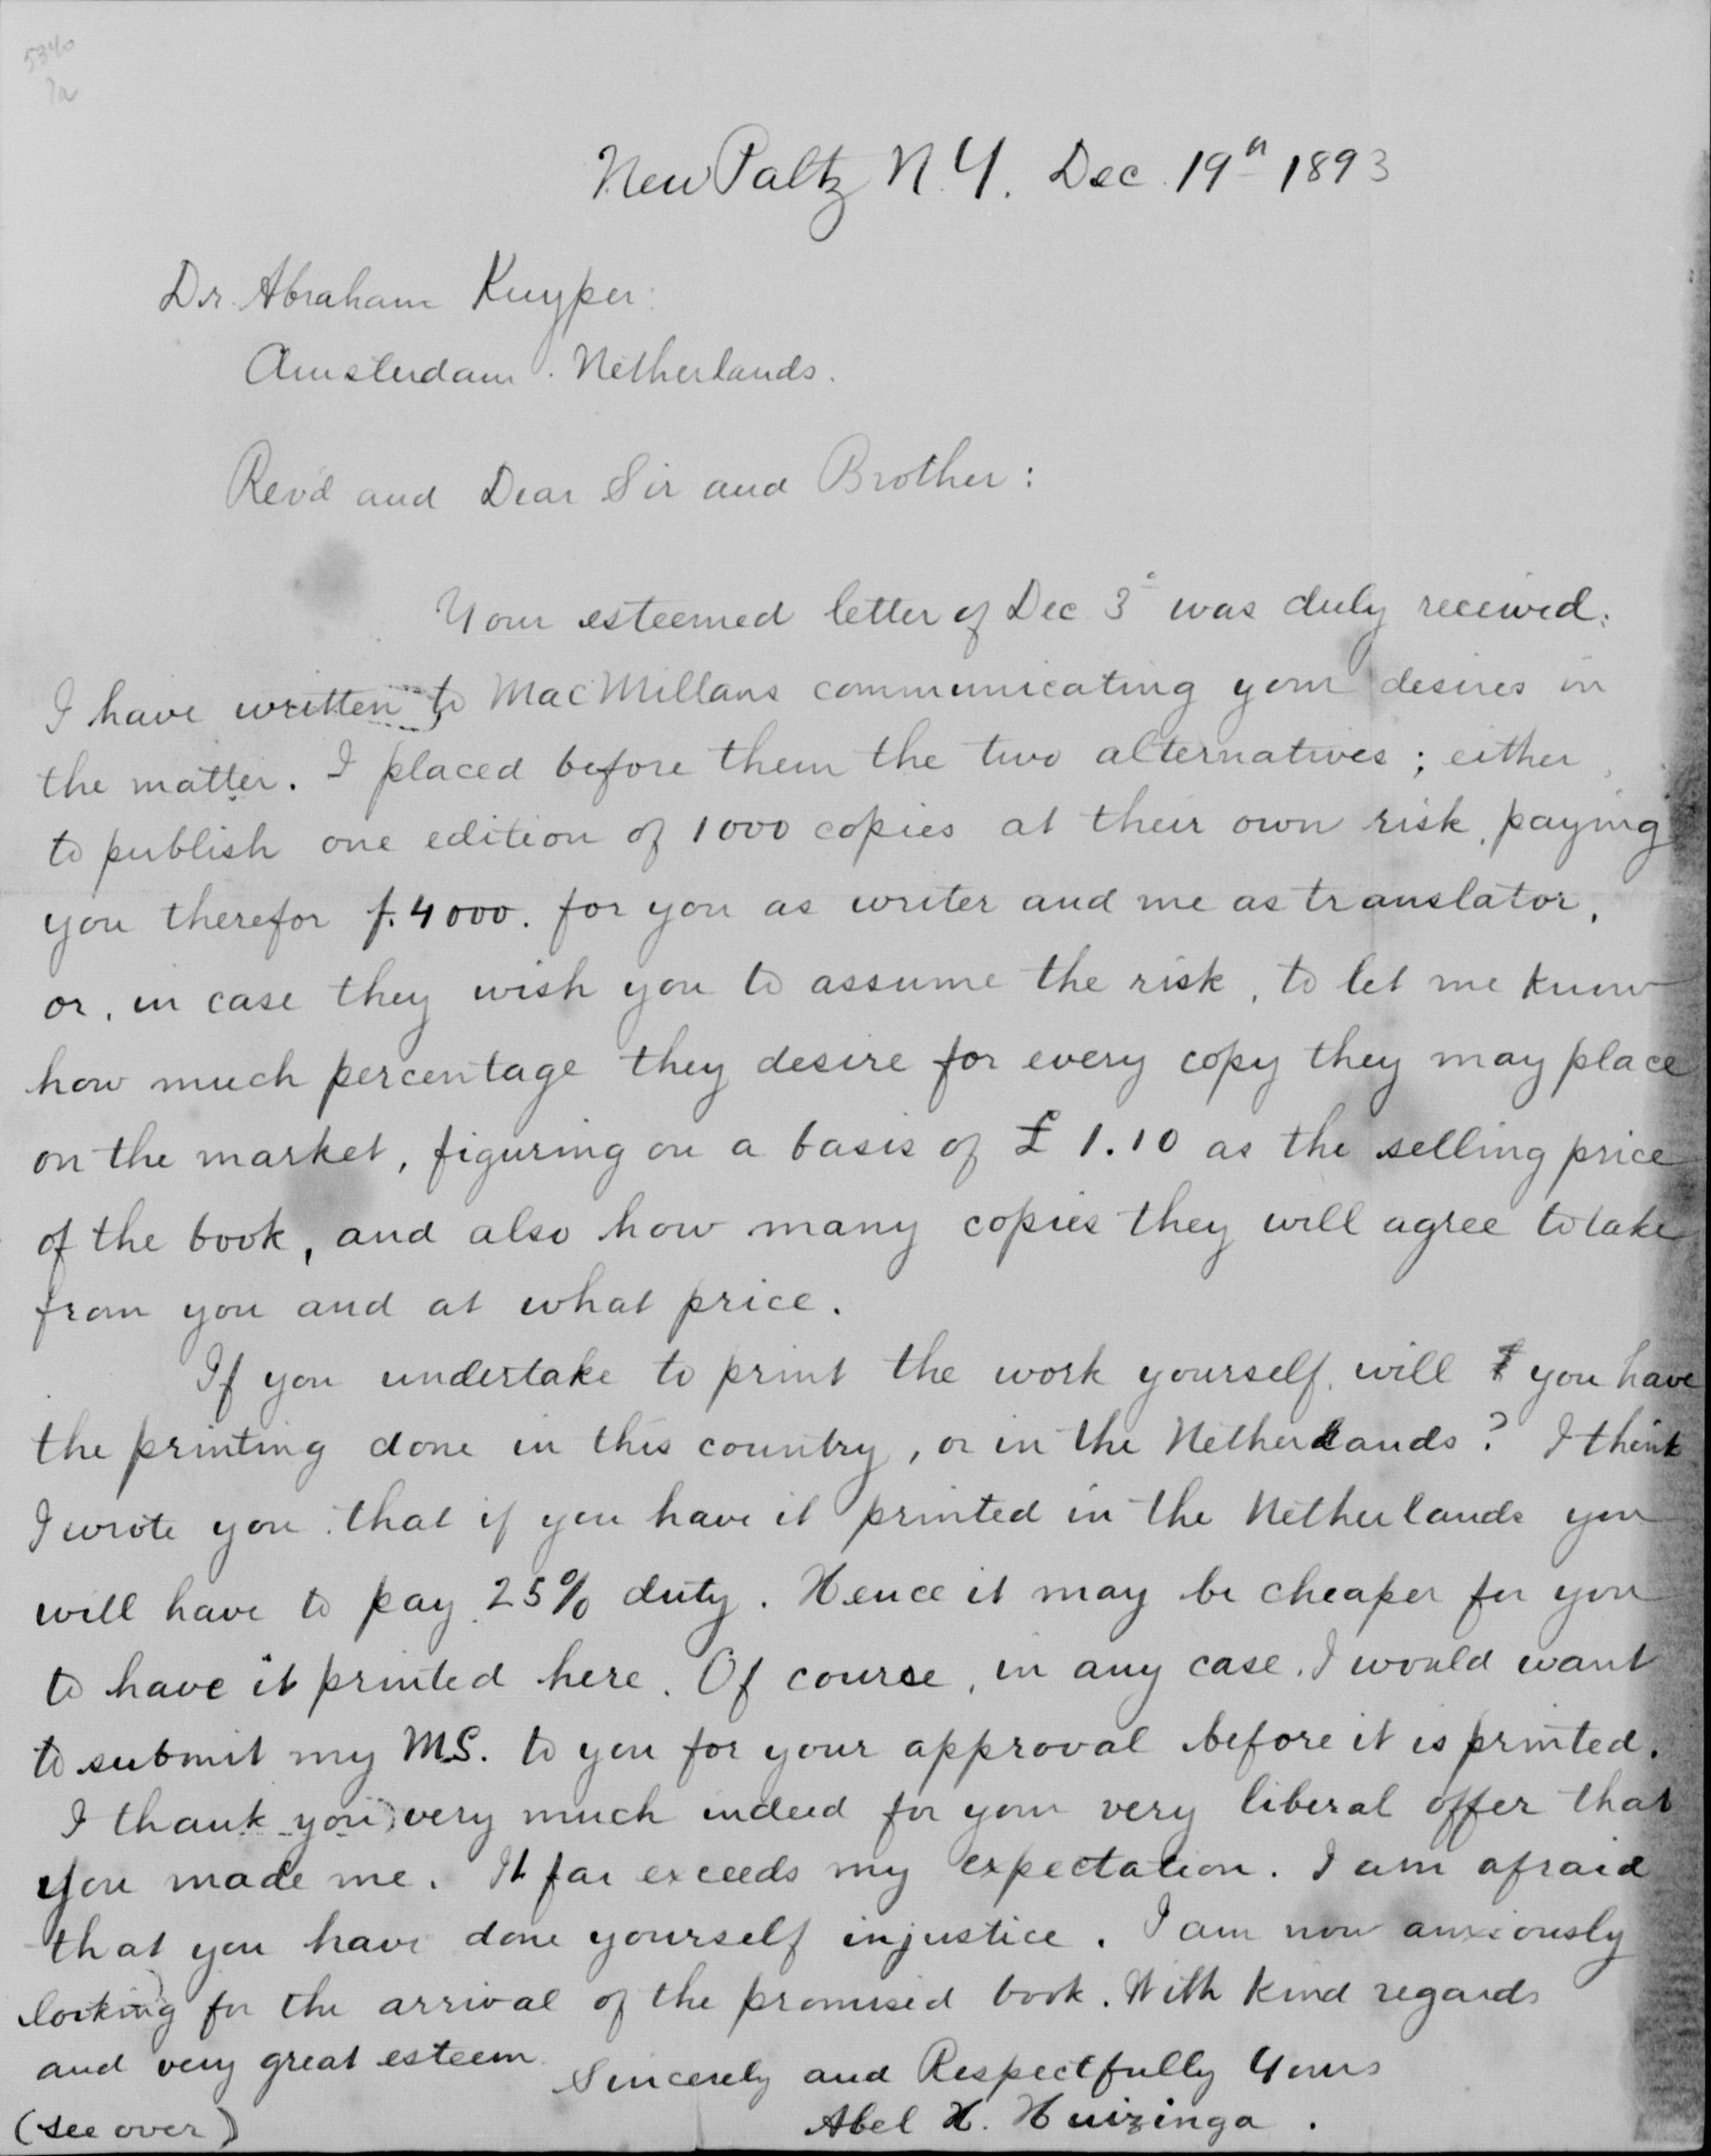 5340
New Paltz N.Y. Dec. 19th 1893
Dr. Abraham Kuyper.
Amsterdam. Netherlands.
Rev'd and Dear Sir and Brother:
Your esteemed letter of Dec 3d was duly received.
I have written to MacMillans communicating your desires in
the matter. I placed before them the two alternatives; either
to publish one edition of 1000 copies at their own risk, paying
you therefor f. 4000. for you as writer and me as translator,
or, in case they wish you to assume the risk, to let me know
how much percentage they desire for every copy they may place
on the market, figuring on a basis of £ 1.10 as the selling price
of the book, and also how many copies they will agree to take
from you and at what price.
If you undertake to print the work yourself, will you have
the printing done in this country, or in the Netherlands? I think
I wrote you that if you have it printed in the Netherlands you
will have to pay 25% duty. Hence it may be cheaper for you
to have it printed here. Of course, in any case, I would want
to submit my MS. to you for your approval before it is printed.
I thank you very much indeed for your very liberal offer that
you made me. It far exceeds my expectation. I am afraid
that you have done yourself injustice. I am now anxiously
looking for the arrival of the promised book. With kind regards
and very great esteem
Sincerely and Respectfully Yours
Abel H. Huizinga.
(see over)